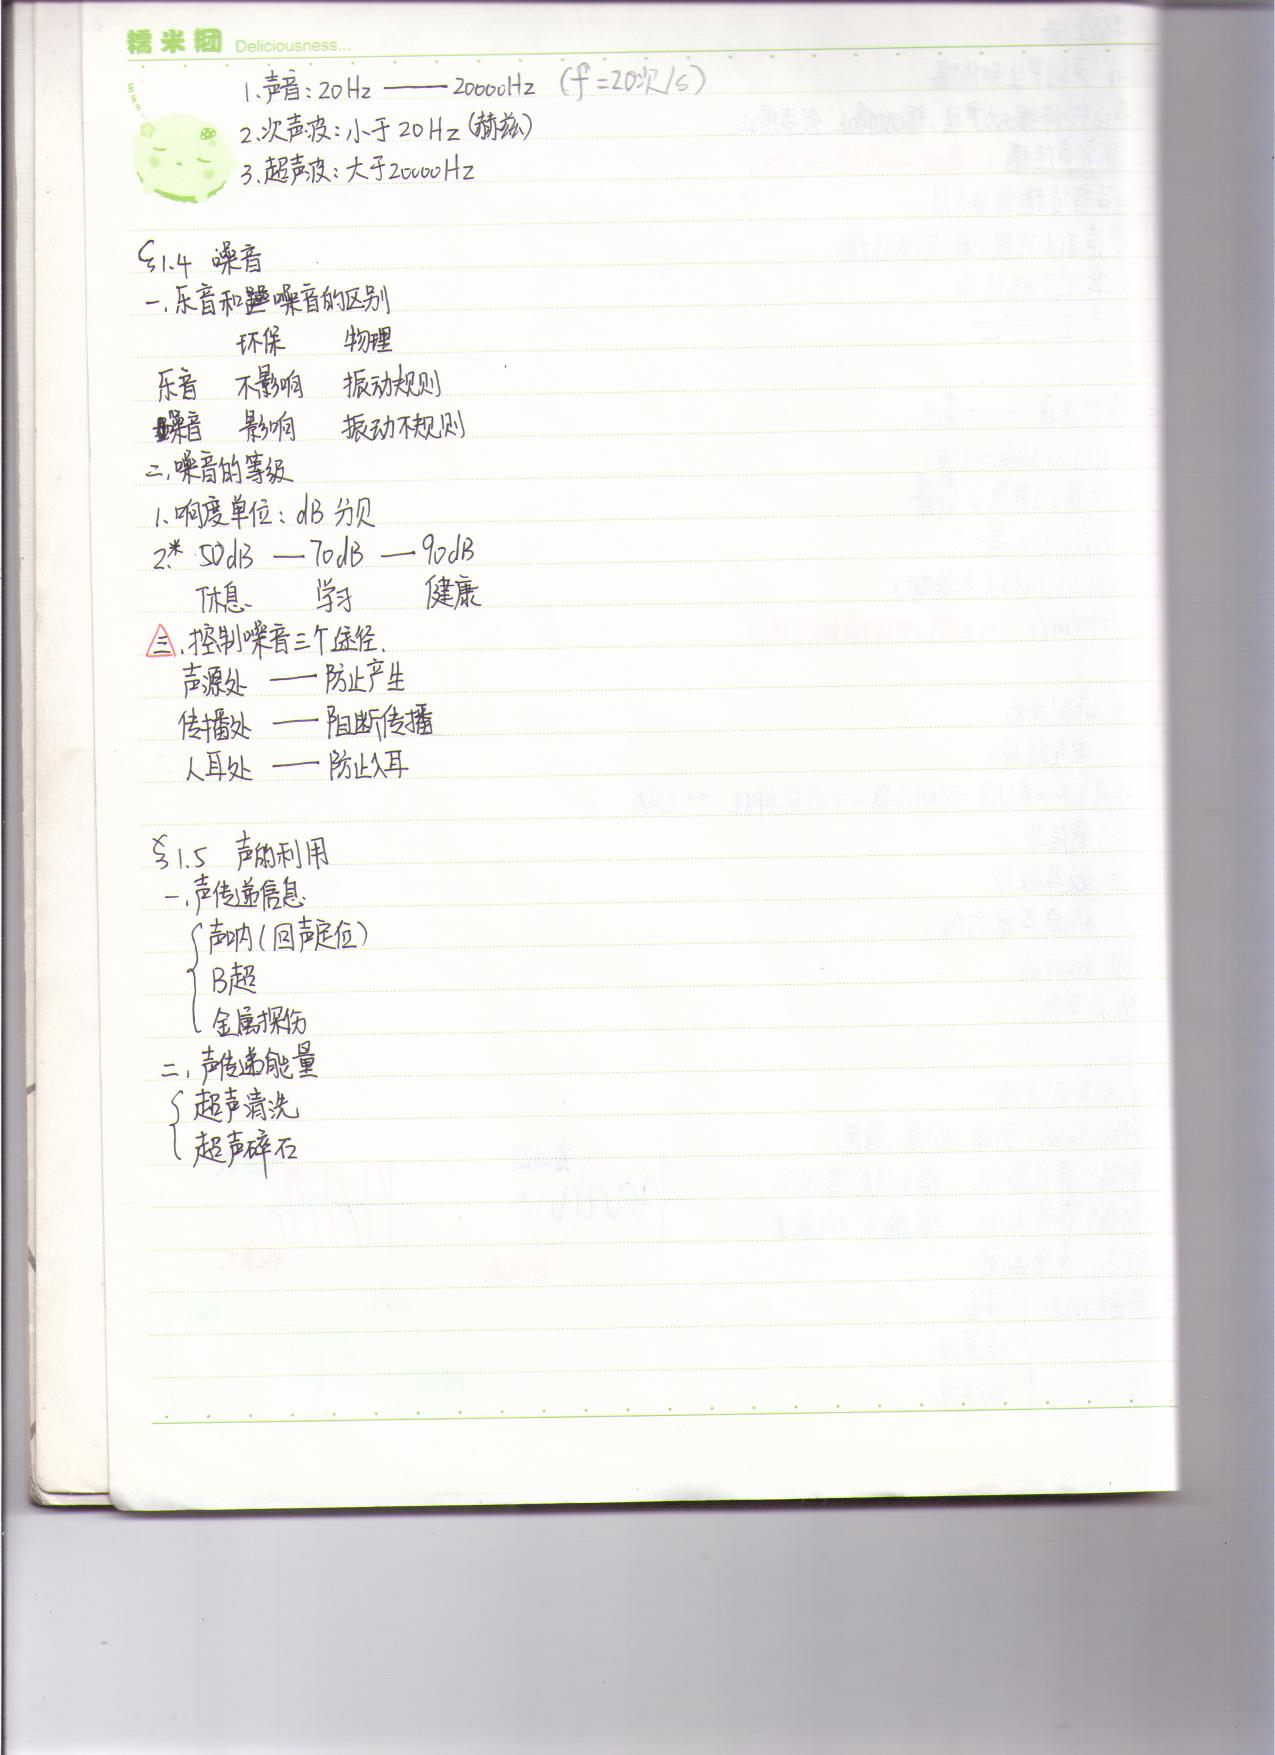 糯米团 Deliciousness...
1.声音:20Hz —— 20000Hz (f=20次/s)
2.次声波:小于20Hz(赫兹)
3.超声波:大于20000Hz
§1.4 噪音
一.乐音和噪音的区别
环保 物理
乐音 不影响 振动规则
噪音 影响 振动不规则
二.噪音的等级
1.响度单位:dB 分贝
2.* 50dB — 70dB — 90dB
休息 学习 健康
三.控制噪音三个途径.
声源处 —— 防止产生
传播处 —— 阻断传播
人耳处 —— 防止入耳
§1.5 声的利用
一.声传递信息
声呐(回声定位)
B超
金属探伤
二.声传递能量
超声清洗
超声碎石